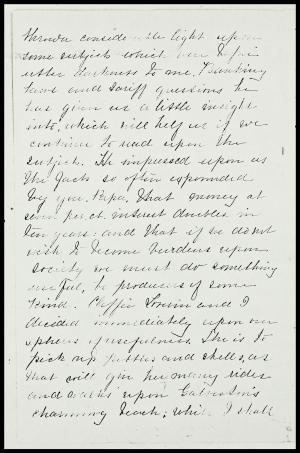 thrown considerable light upon
some subjects which were before
utter darkness to me. Banking
laws and tariff questions he
has given us a little insight
into, which will help us if we
continue to read upon the
subject. He impressed upon us
the facts so often expounded
by you, Papa, that money at
seven per ct. interest doubles in
ten years: and that if we do not
wish to become burdens upon
society we must do something
useful, be producers of some
kind. and I
decided immediately upon our
sphere of usefulness. She is to
pick up pebbles and shells, as
that will give her many rides
and walks upon Galveston's
charming beach; while I shall